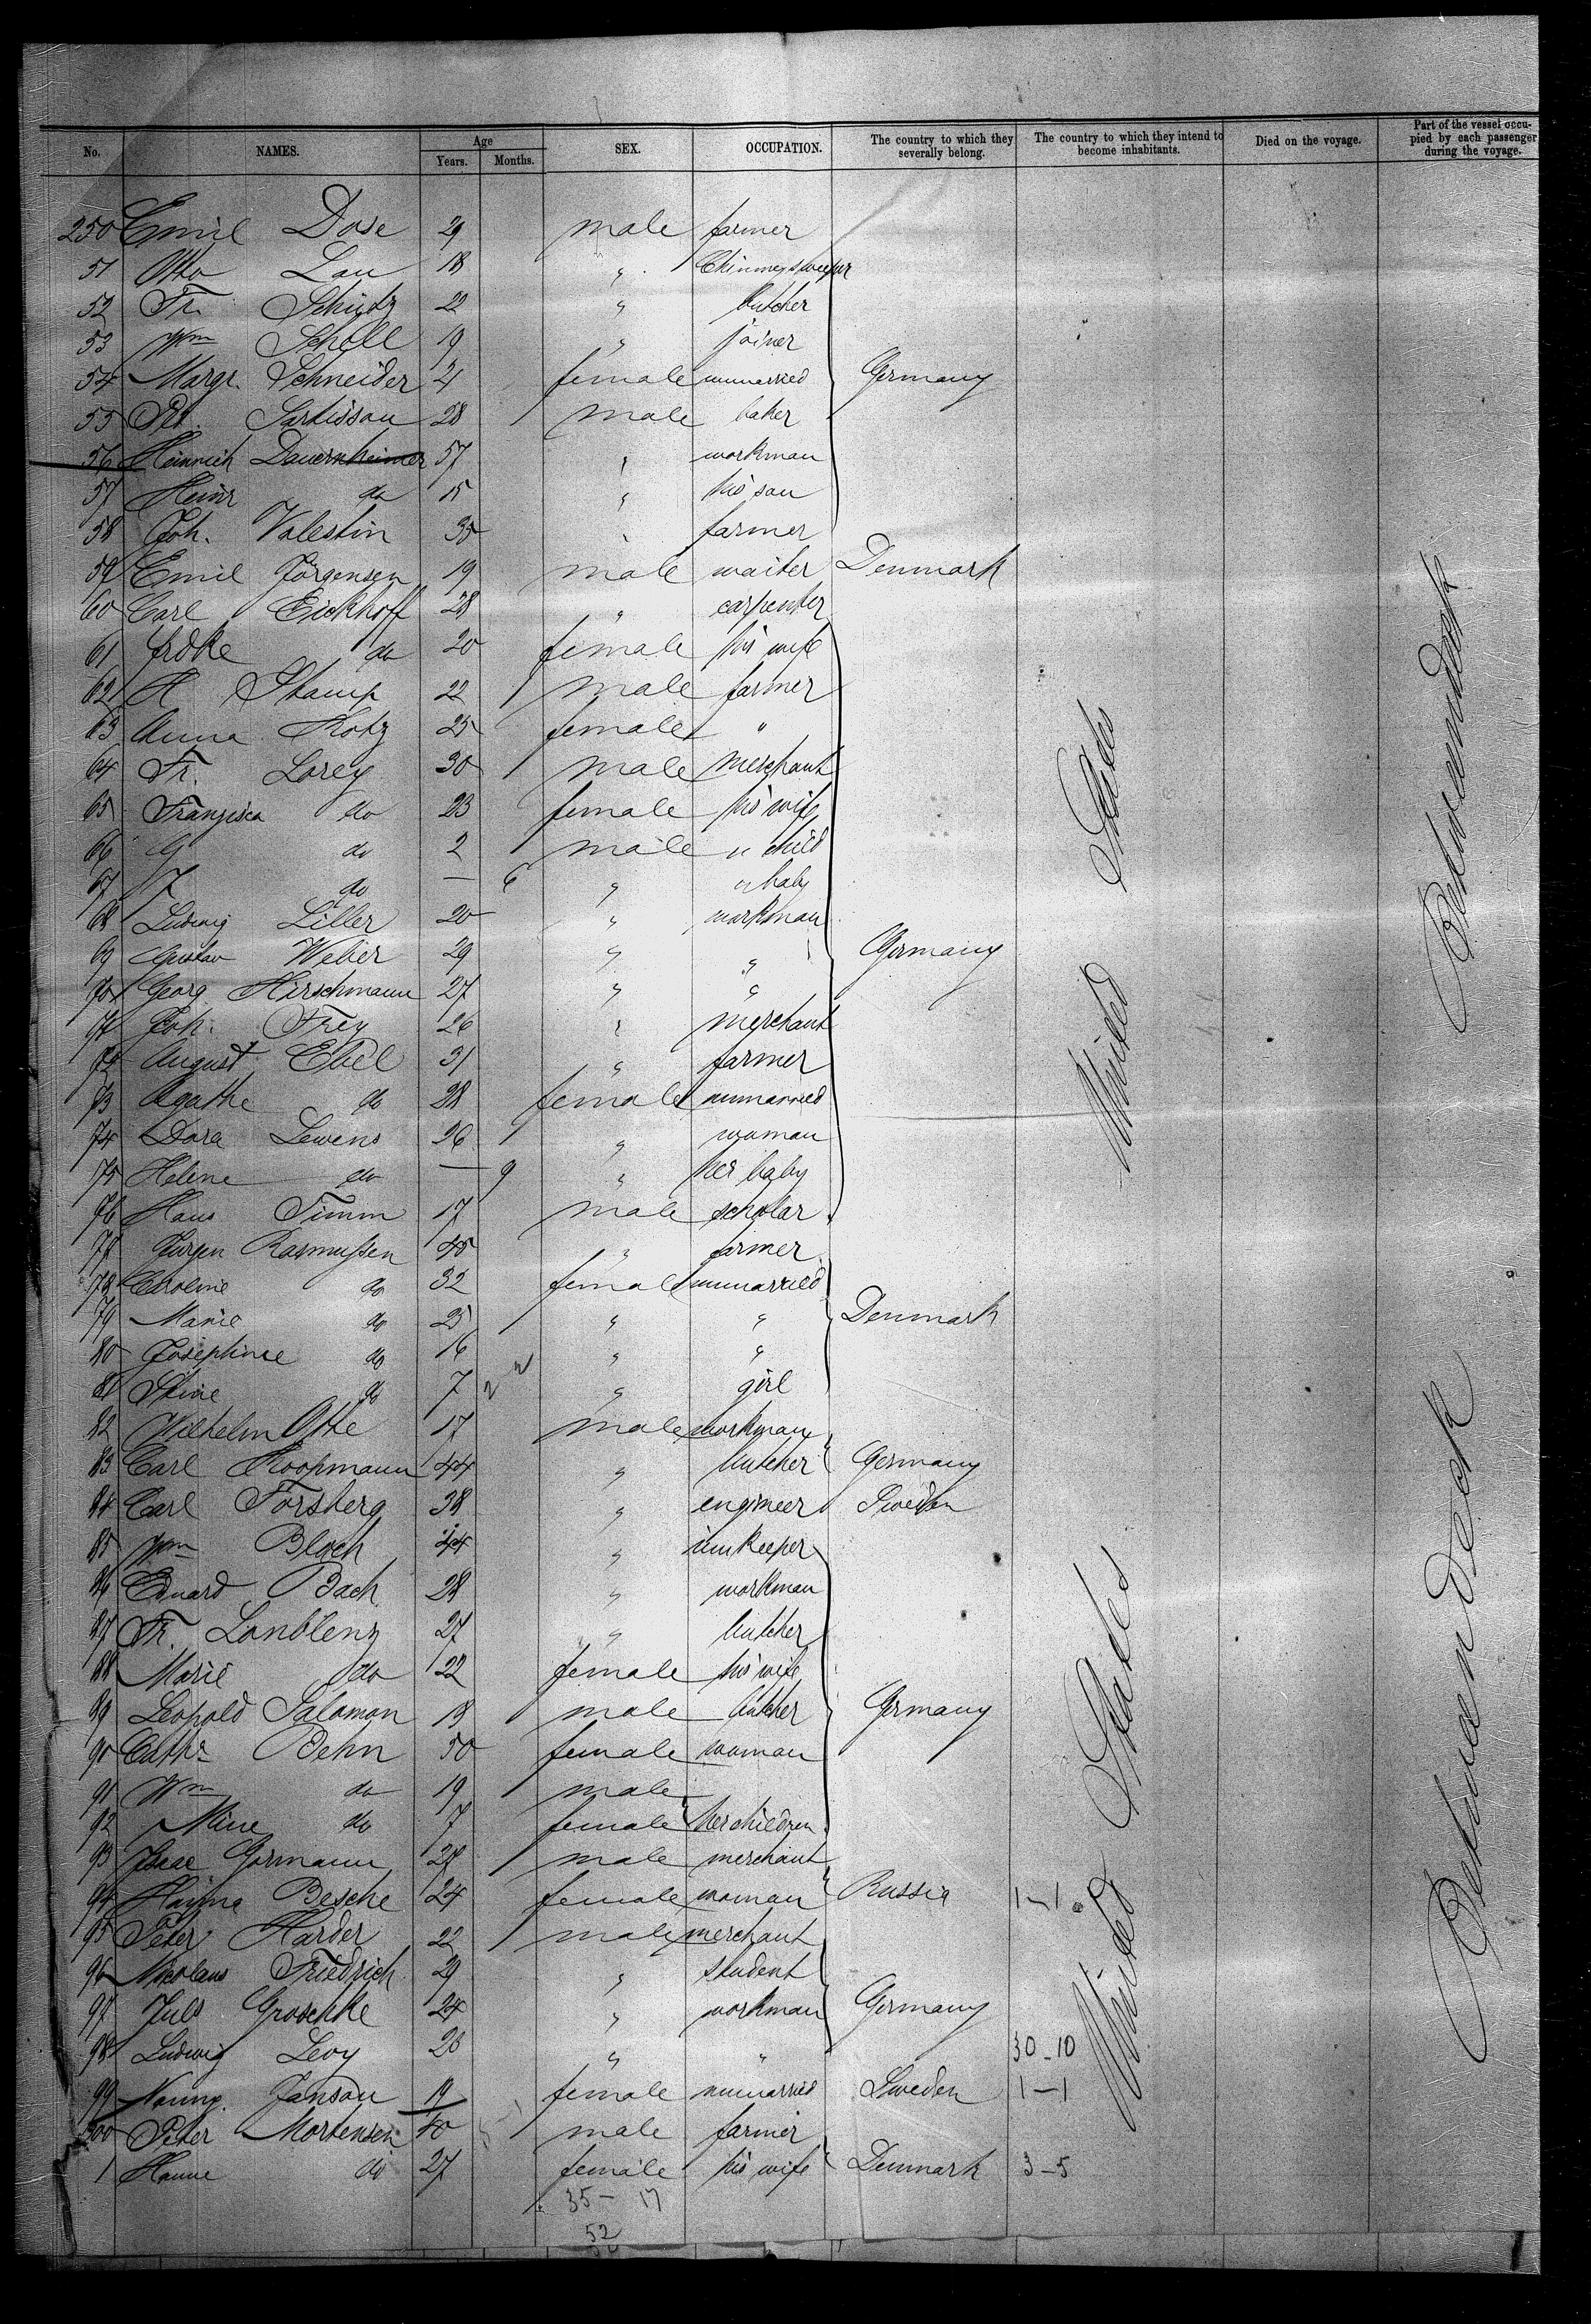 No. NAMES. Age Years. Months. SEX. OCCUPATION. The country to which they severally belong. The country to which they intend to become inhabitants. Died on the voyage. Part of the vessel occupied by each passenger during the voyage.
250 Emil Dose 29 male farmer
51 Otto Lau 18 " Chimneysweeper
52 Fr. 22 " butcher
53 Wm Scholl 19 " joiner
54 Margr. Schneider 21 female unmarried Germany
55 28 male baker
56 Heinrich Dauernheimer 57 " workman
57 Heinr do 15 " his son
58 Joh. Valestin 35 " farmer
59 Emil Jörgensen 19 male waiter Denmark
60 Carl Eickhoff 28 " carpenter
61 do 20 female his wife
62 H Stamp 22 male farmer
63 Anna Kotz 25 female "
64 Fr. Lorey 30 male merchant
65 Franzisca do 23 female his wife
66 G do 2 male " child
67 do — 6 " " baby
68 Ludwig Liller 20 " workman
69 Gustav Weber 29 " " Germany
70 Georg Hirschmann 27 " "
71 Joh. Frey 26 " merchant
72 August Ebel 31 " farmer
73 Agathe do 28 female unmarried
74 Dora Lewens 26 " woman
75 Helene do — 9 " her baby
76 Hans Timm 17 male scholar
77 Jürgen Rasmussen 45 " farmer
78 Caroline do 32 female unmarried
79 Marie do 25 " " Denmark
80 Josephine do 16 " "
81 Stine do 7 " girl
82 Wilhelm Otte 17 male workman
83 Carl Koopmann 44 " butcher Germany
84 Carl Forsberg 38 " engineer Sweden
85 Wm Bloch 44 " innkeeper
86 Eduard Bach 28 " workman
87 Fr. Lonblenz 27 " butcher
88 Marie do 22 female his wife
89 Leopold Salomon 18 male butcher Germany
90 Cathr Behn 50 female woman
91 Wm do 19 male
92 Mine do 7 female her children
93 Isaac Gormann 27 male merchant
94 Besche 24 female woman Russia 1-1
95 Peter Harder 22 male merchant
96 Nicolaus Friedrich 29 " student
97 Juls Groschke 24 " workman Germany
98 Ludwig Levy 26 " " 30-10
99 Janson 19 female unmarried Sweden 1-1
300 Peter Mortensen 40 male farmer
1 Hanne do 27 female his wife Denmark 3-5
35 - 17
52
United States
United States
Betweendeck
Betweendeck